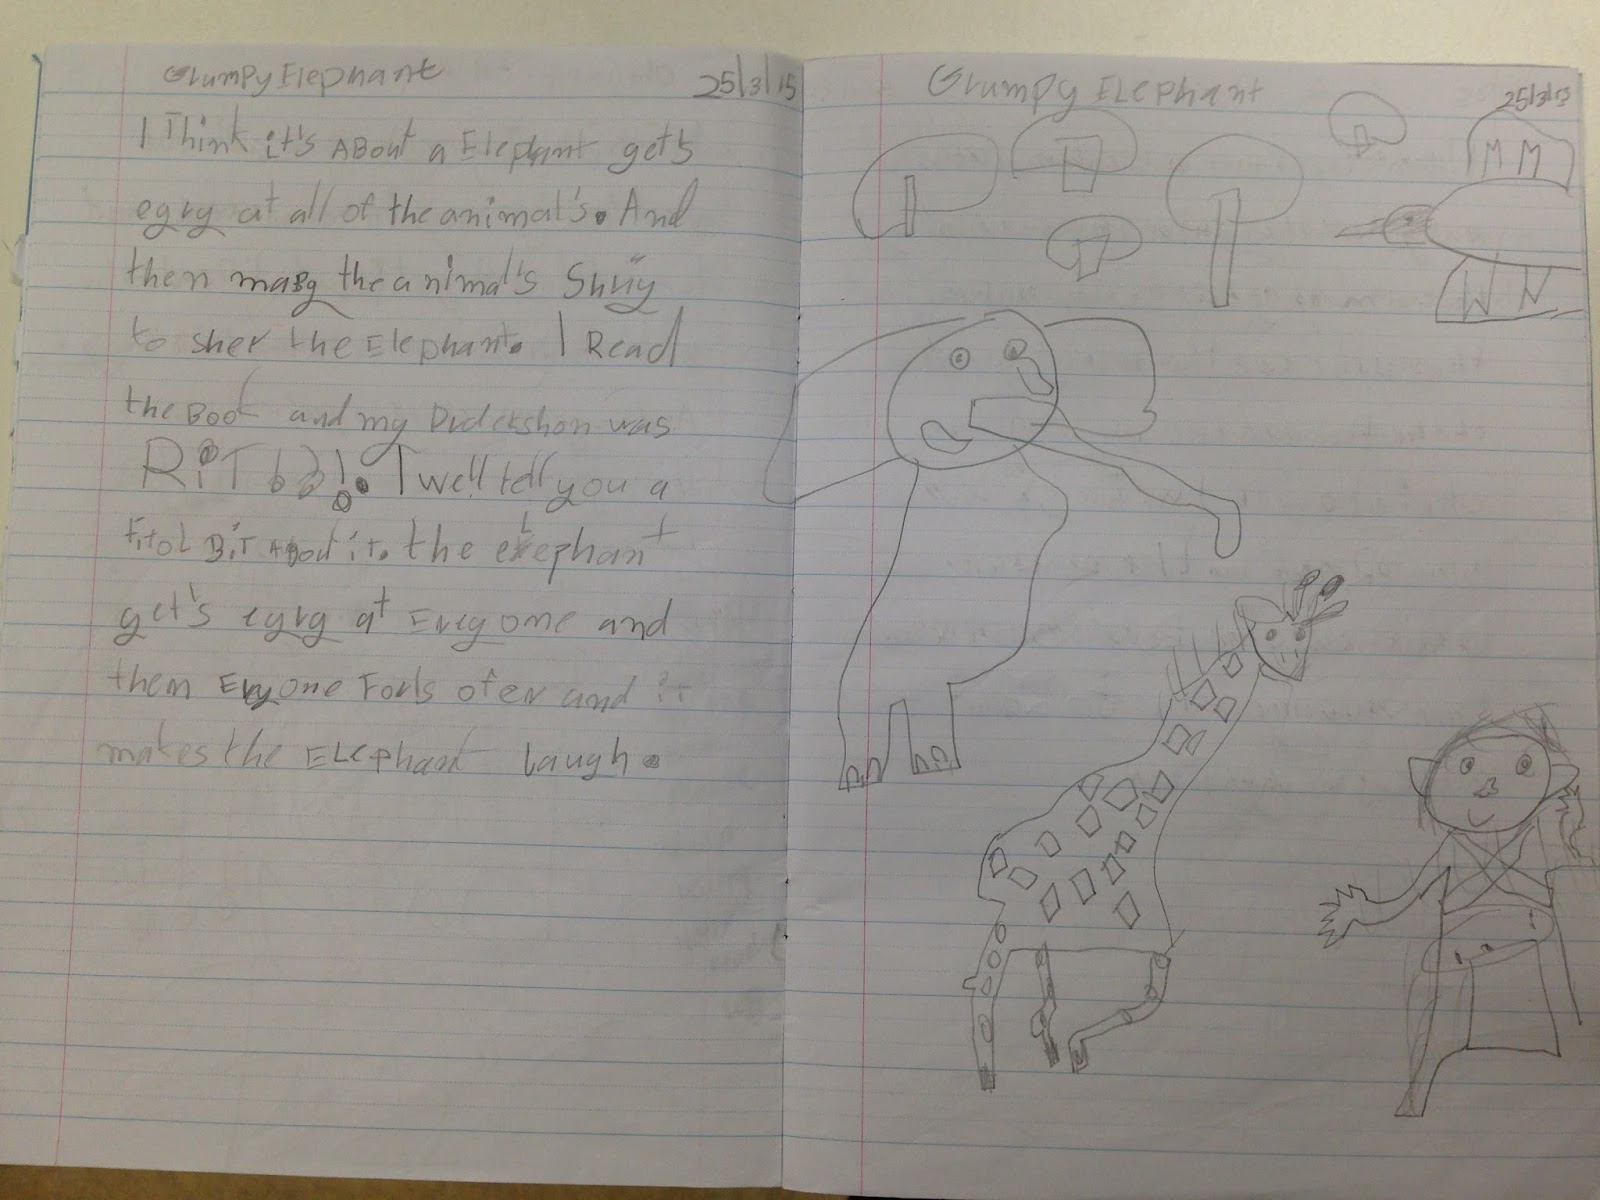 Grumpy Elephant 25/3/15
I Think it's ABout a Elephant gets
egry at all of the animal's. And
then the animal's
to sher the Elephant. I Read
the Book and my Prdickshon was
RiT I well tell you a
titol BiT ABout it. the elephant
get's egrg at Evryone and
them Evryone Forls ofer and it
makes the ELephant Laugh.
Grumpy ELephant 25/3/15